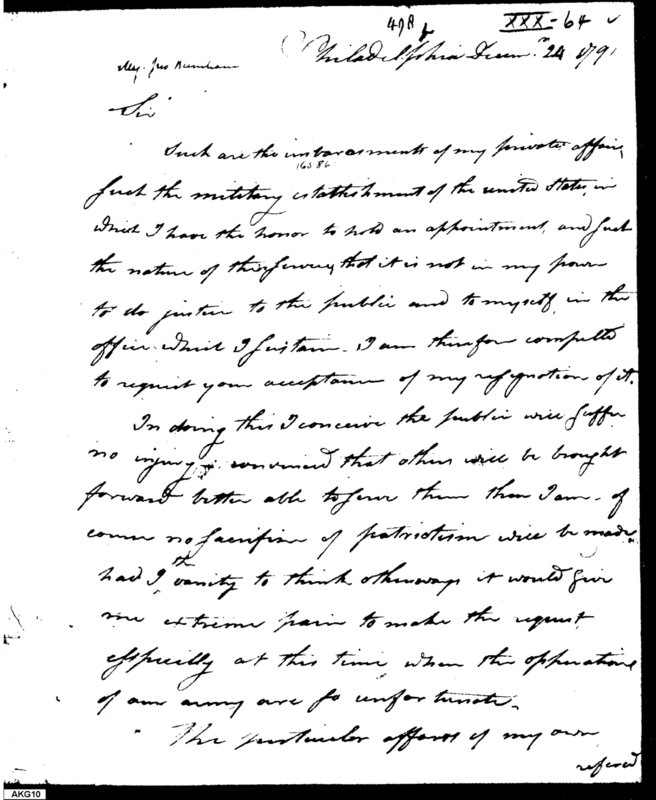 XXX-64
Philadelphia Decem. 24 1791
Maj. Jno Burnham
Sir
Such are the imbarasments of my private affairs,
such the military establishment of the united States, in
which I have the honor to hold an appointment, and such
the nature of the service, that it is not in my power
to do justice to the public and to myself in the
office which I sustain. I am therefore compelled
to request your acceptance of my resignation of it.
In doing this I conceive the public will suffer
no injury convinced that others will be brought
forward better able to serve them than I am. of
course no sacrifise of patriotism will be made.
had I the vanity to think otherways it would give
me extreme pain to make the request
espicilly at this time when the opperations
of our army are so unfortunate.
The perticuler affares of my own
refered
AKG10